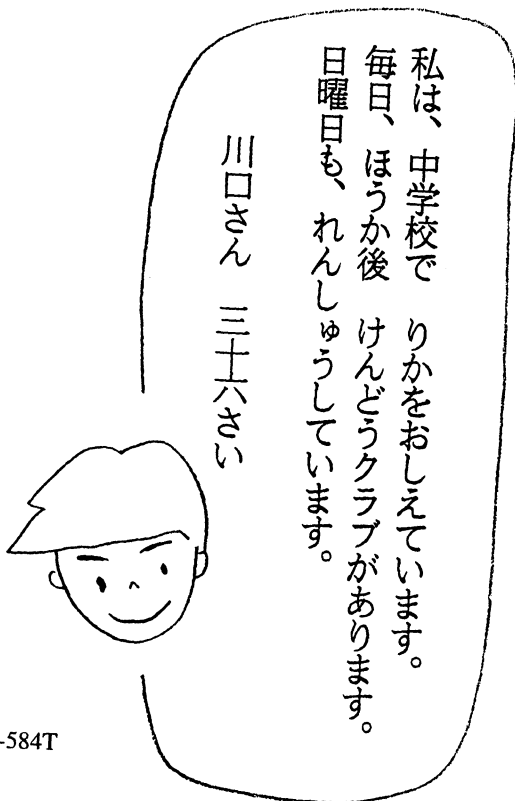 私は、中学校で　りかをおしえています。
毎日、ほうか後　けんどうクラブがあります。
日曜日も、れんしゅうしています。
川口さん　三十六さい
-584T